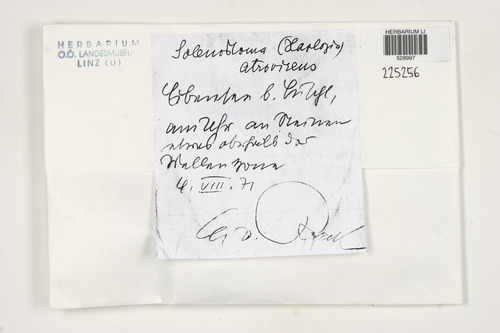 HERBARIUM
O.Ö. LANDESMUSEUM
LINZ (U)
HERBARIUM LI
528997
225256
Solenostoma (Haplozia)
atrovirens
b.
am Ufer an Steinen
etwas oberhalb der
Wellenzone
4. VIII. 71